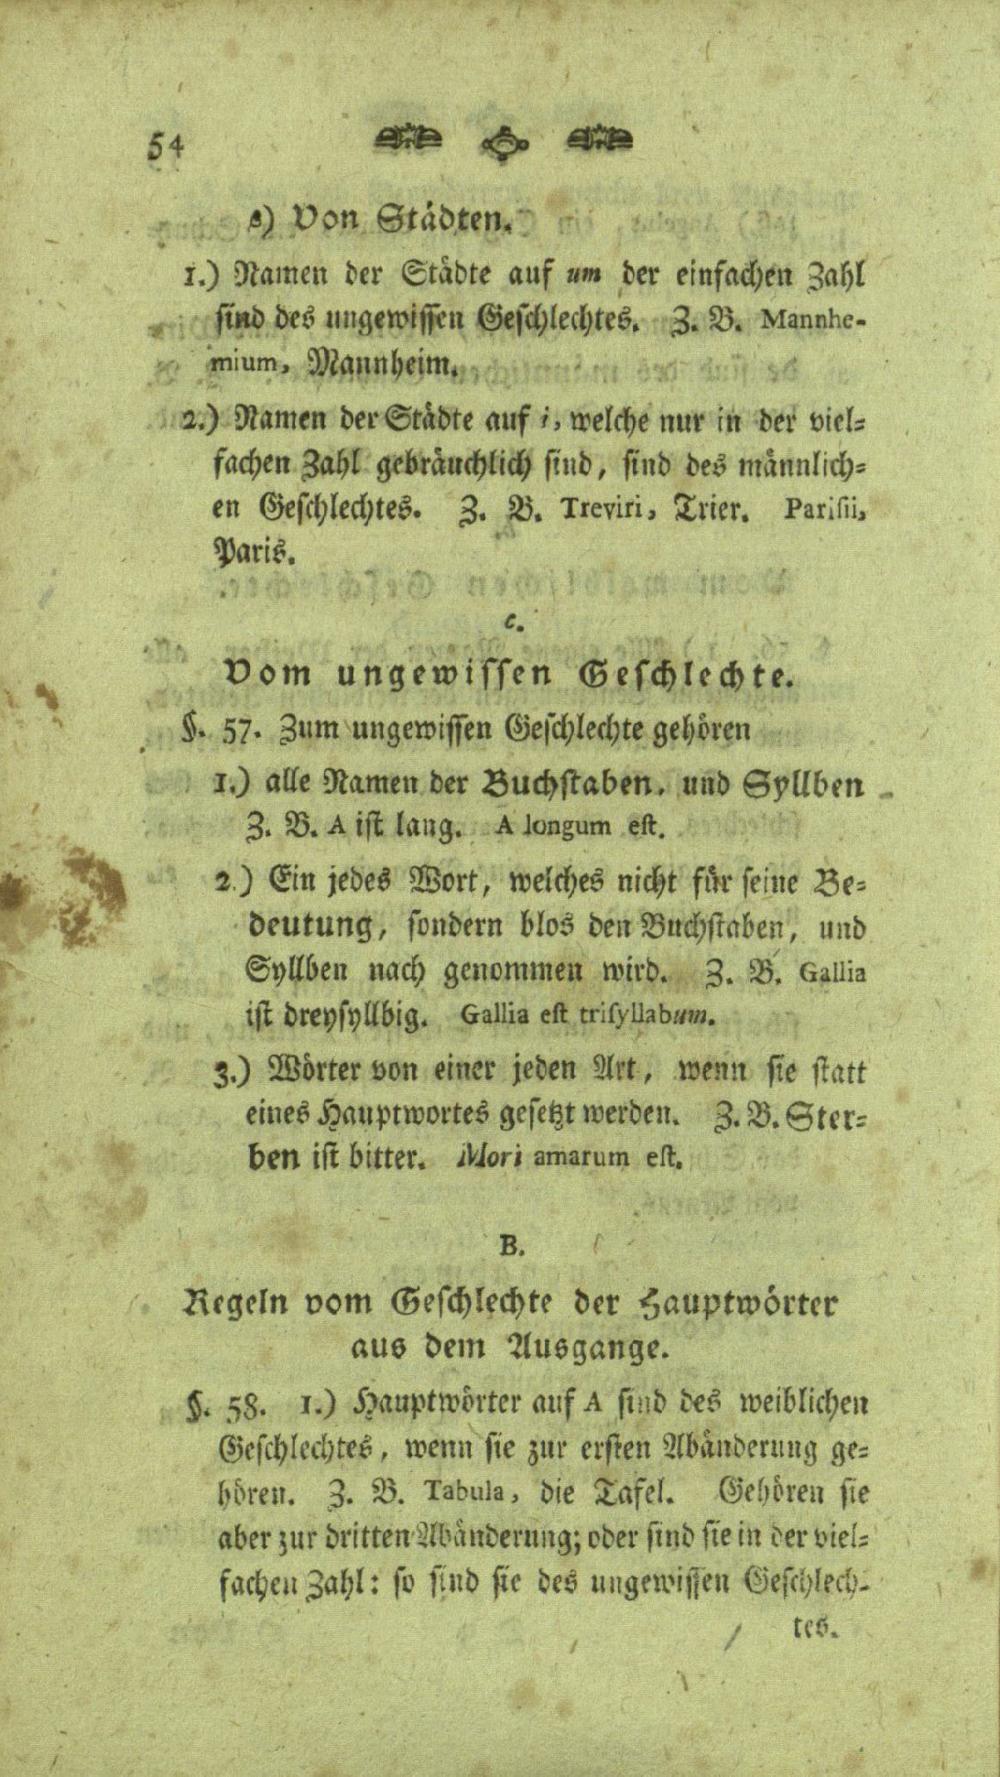 54
s) Von Städten.
1.) Namen der Städte auf um der einfachen Zahl
sind des ungewissen Geschlechtes. Z. B. Mannhe-
mium, Mannheim.
2.) Namen der Städte auf i, welche nur in der viel=
fachen Zahl gebräuchlich sind, sind des männlich=
en Geschlechtes. Z. B. Treviri, Trier. Parisii,
Paris.
c.
Vom ungewissen Geschlechte.
§. 57. Zum ungewissen Geschlechte gehören
1.) alle Namen der Buchstaben, und Syllben
Z. B. A ist lang. A longum est.
2.) Ein jedes Wort, welches nicht für seine Be=
deutung, sondern blos den Buchstaben, und
Syllben nach genommen wird. Z. B. Gallia
ist dreysyllbig. Gallia est trisyllabum.
3.) Wörter von einer jeden Art, wenn sie statt
eines Hauptwortes gesetzt werden. Z. B. Ster=
ben ist bitter. Mori amarum est.
B.
Regeln vom Geschlechte der Hauptwörter
aus dem Ausgange.
§. 58. 1.) Hauptwörter auf A sind des weiblichen
Geschlechtes, wenn sie zur ersten Abänderung ge=
hören. Z. B. Tabula, die Tafel. Gehören sie
aber zur dritten Abänderung; oder sind sie in der viel=
fachen Zahl: so sind sie des ungewissen Geschlech-
tes.